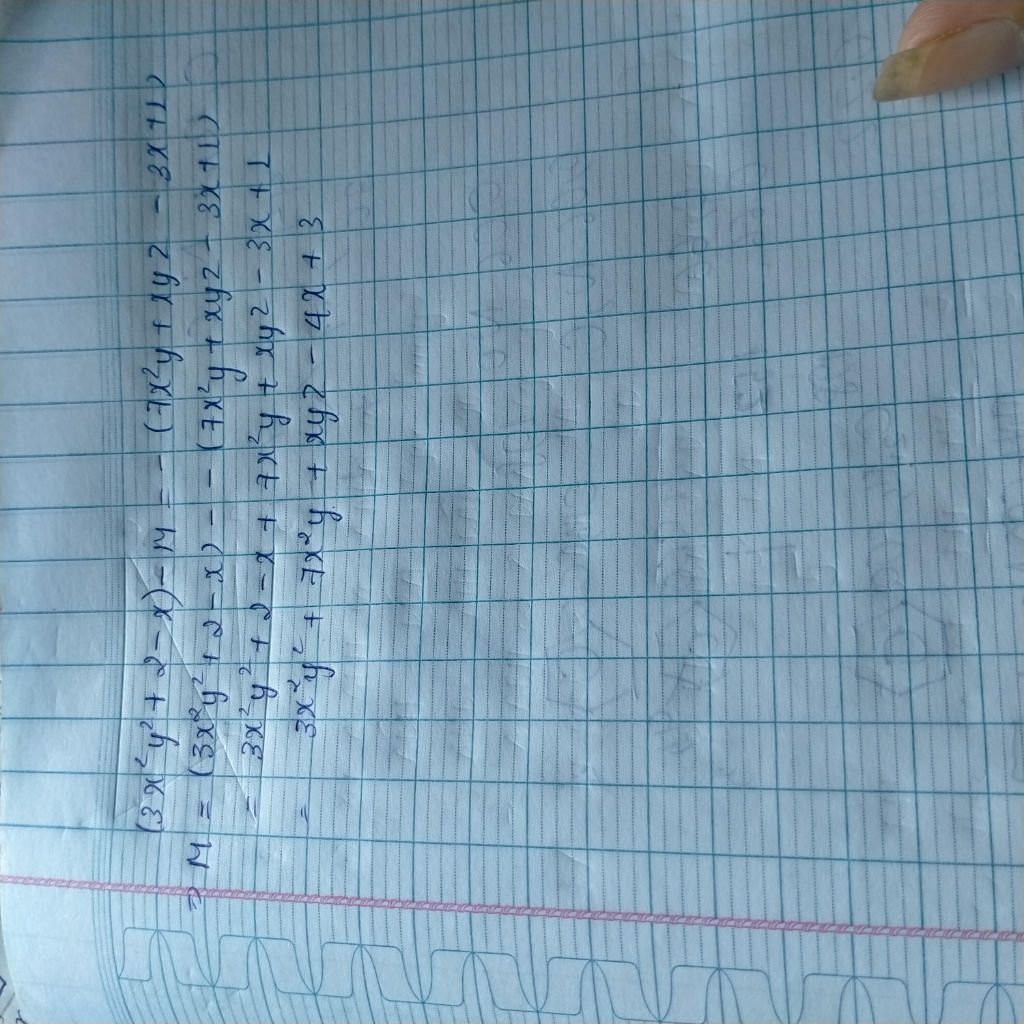 (3x²y² + 2 - x) - M = - (7x²y + xy2 - 3x + 1)
⇒ M = (3x²y² + 2 - x) - - (7x²y + xy2 - 3x + 1)
= 3x²y² + 2 - x + 7x²y + xy2 - 3x + 1
= 3x²y² + 7x²y + xy2 - 4x + 3